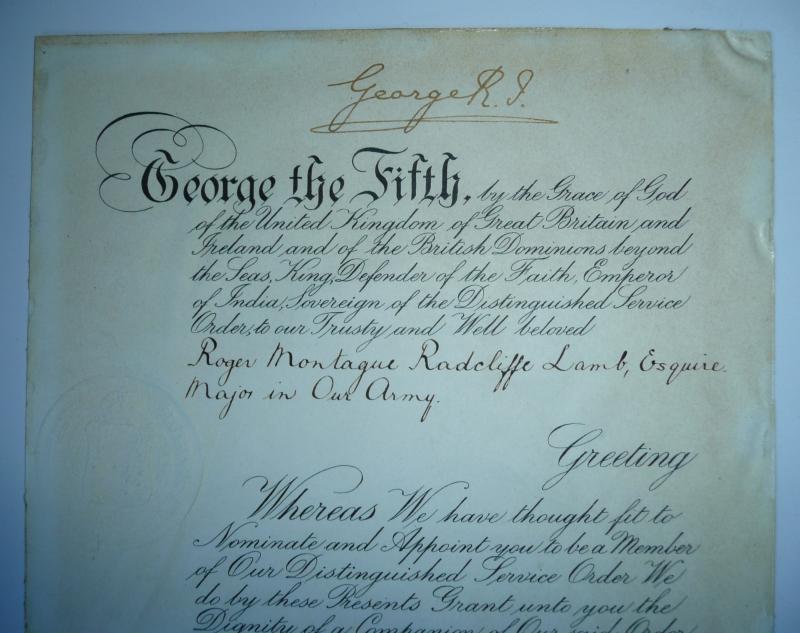 George R.I.
George the Fifth, by the Grace of God
of the United Kingdom of Great Britain and
Ireland and of the British Dominions beyond
the Seas, King, Defender of the Faith, Emperor
of India, Sovereign of the Distinguished Service
Order, to our Trusty and Well beloved
Roger Montague Radcliffe Lamb, Esquire.
Major in Our Army.
Greeting
Whereas We have thought fit to
Nominate and Appoint you to be a Member
of Our Distinguished Service Order We
do by these Presents Grant unto you the
Dignity of a Companion of Our said Order